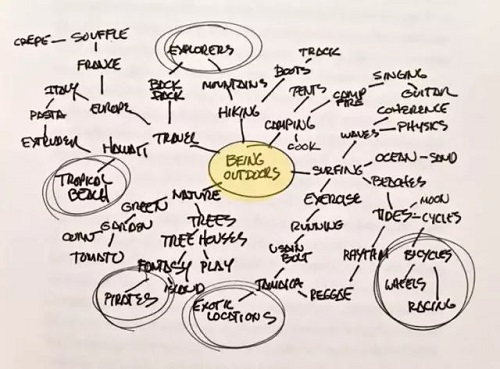 CREPE
SOUFFLE
FRANCE
ITALY
PASTA
EUROPE
EXTRUDER
HAWAII
TROPICAL
BEACH
TRAVEL
BACK
PACK
EXPLORERS
MOUNTAINS
HIKING
BOOTS
TRACK
TENTS
CAMPING
COOK
CAMP
FIRE
SINGING
GUITAR
COHERENCE
WAVES
PHYSICS
BEING
OUTDOORS
SURFING
OCEAN
SAND
BEACHES
TIDES
MOON
CYCLES
BICYCLES
WHEELS
RACING
RHYTHM
EXERCISE
RUNNING
USAIN
BOLT
JAMAICA
REGGAE
EXOTIC
LOCATIONS
NATURE
GREEN
GARDEN
TOMATO
TREES
TREE HOUSES
FANTASY
PLAY
ISLAND
PIRATES